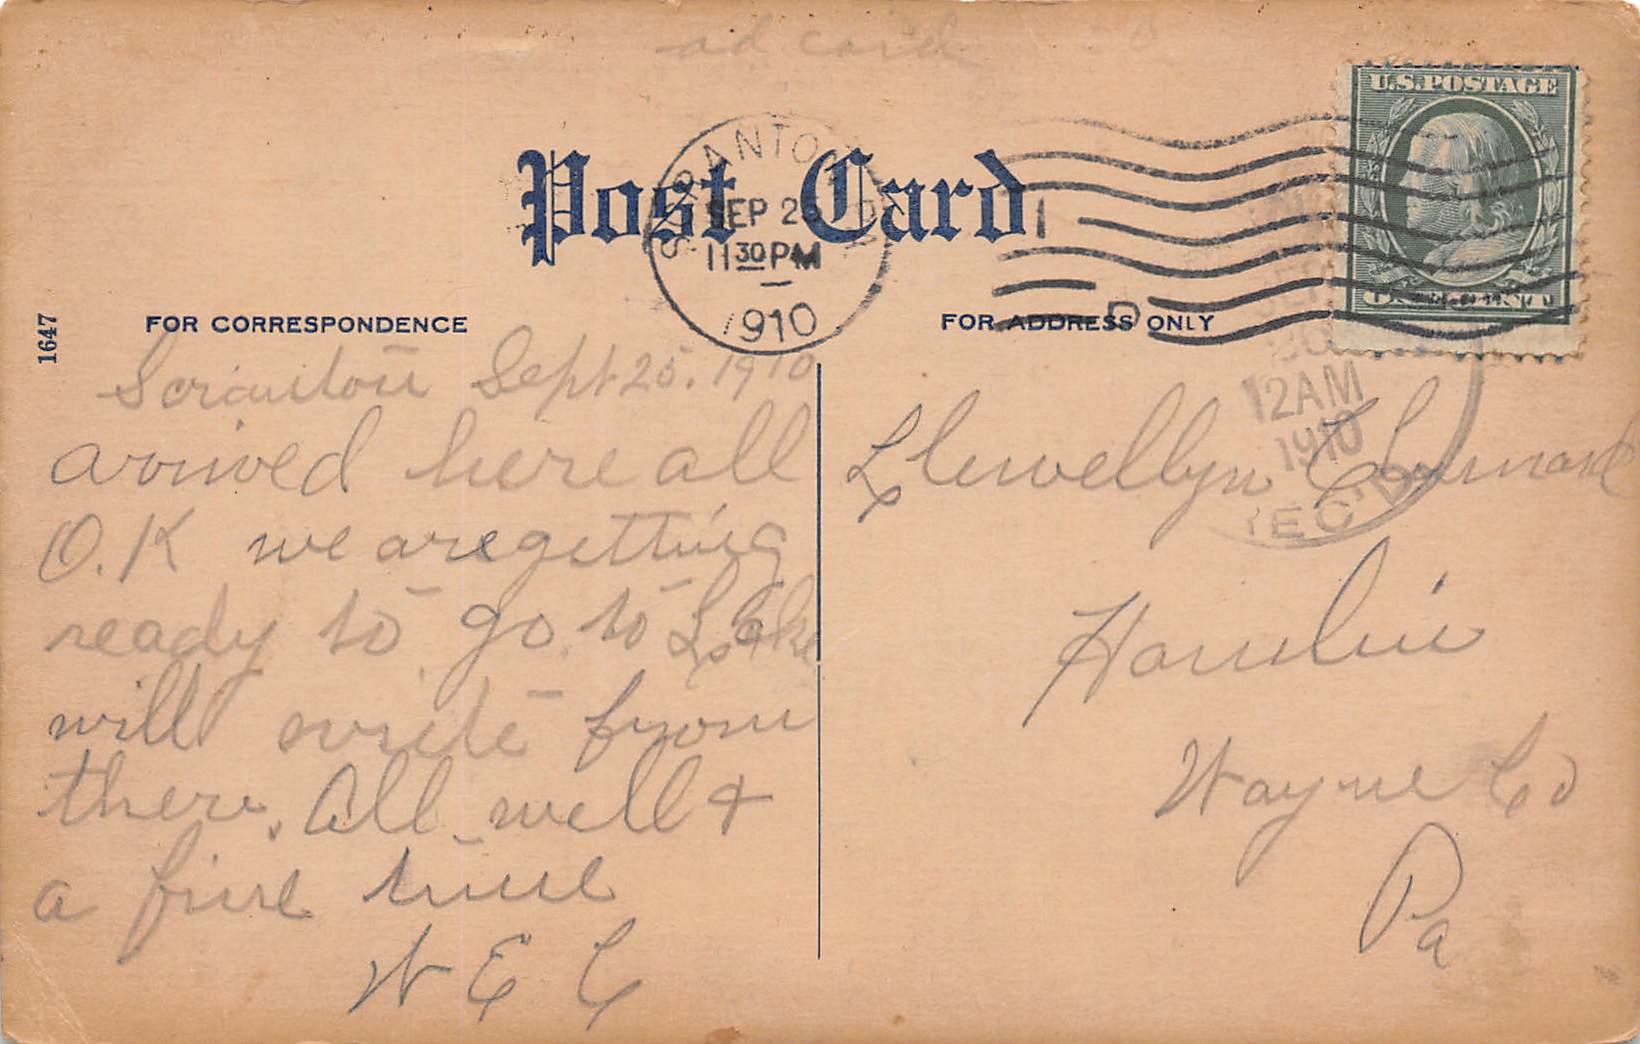 ad card
U.S.POSTAGE
Post Card
SCRANTON PA
SEP 25
11 30 PM
1910
D
1647
FOR CORRESPONDENCE
FOR ADDRESS ONLY
12AM
1910
REC'D
Scranton Sept 25. 1910
arrived here all
O.K we are getting
ready to go to Lake
will write from
there. All well +
a fine time
W E C
Llewellyn
Hamlin
Wayne Co
Pa